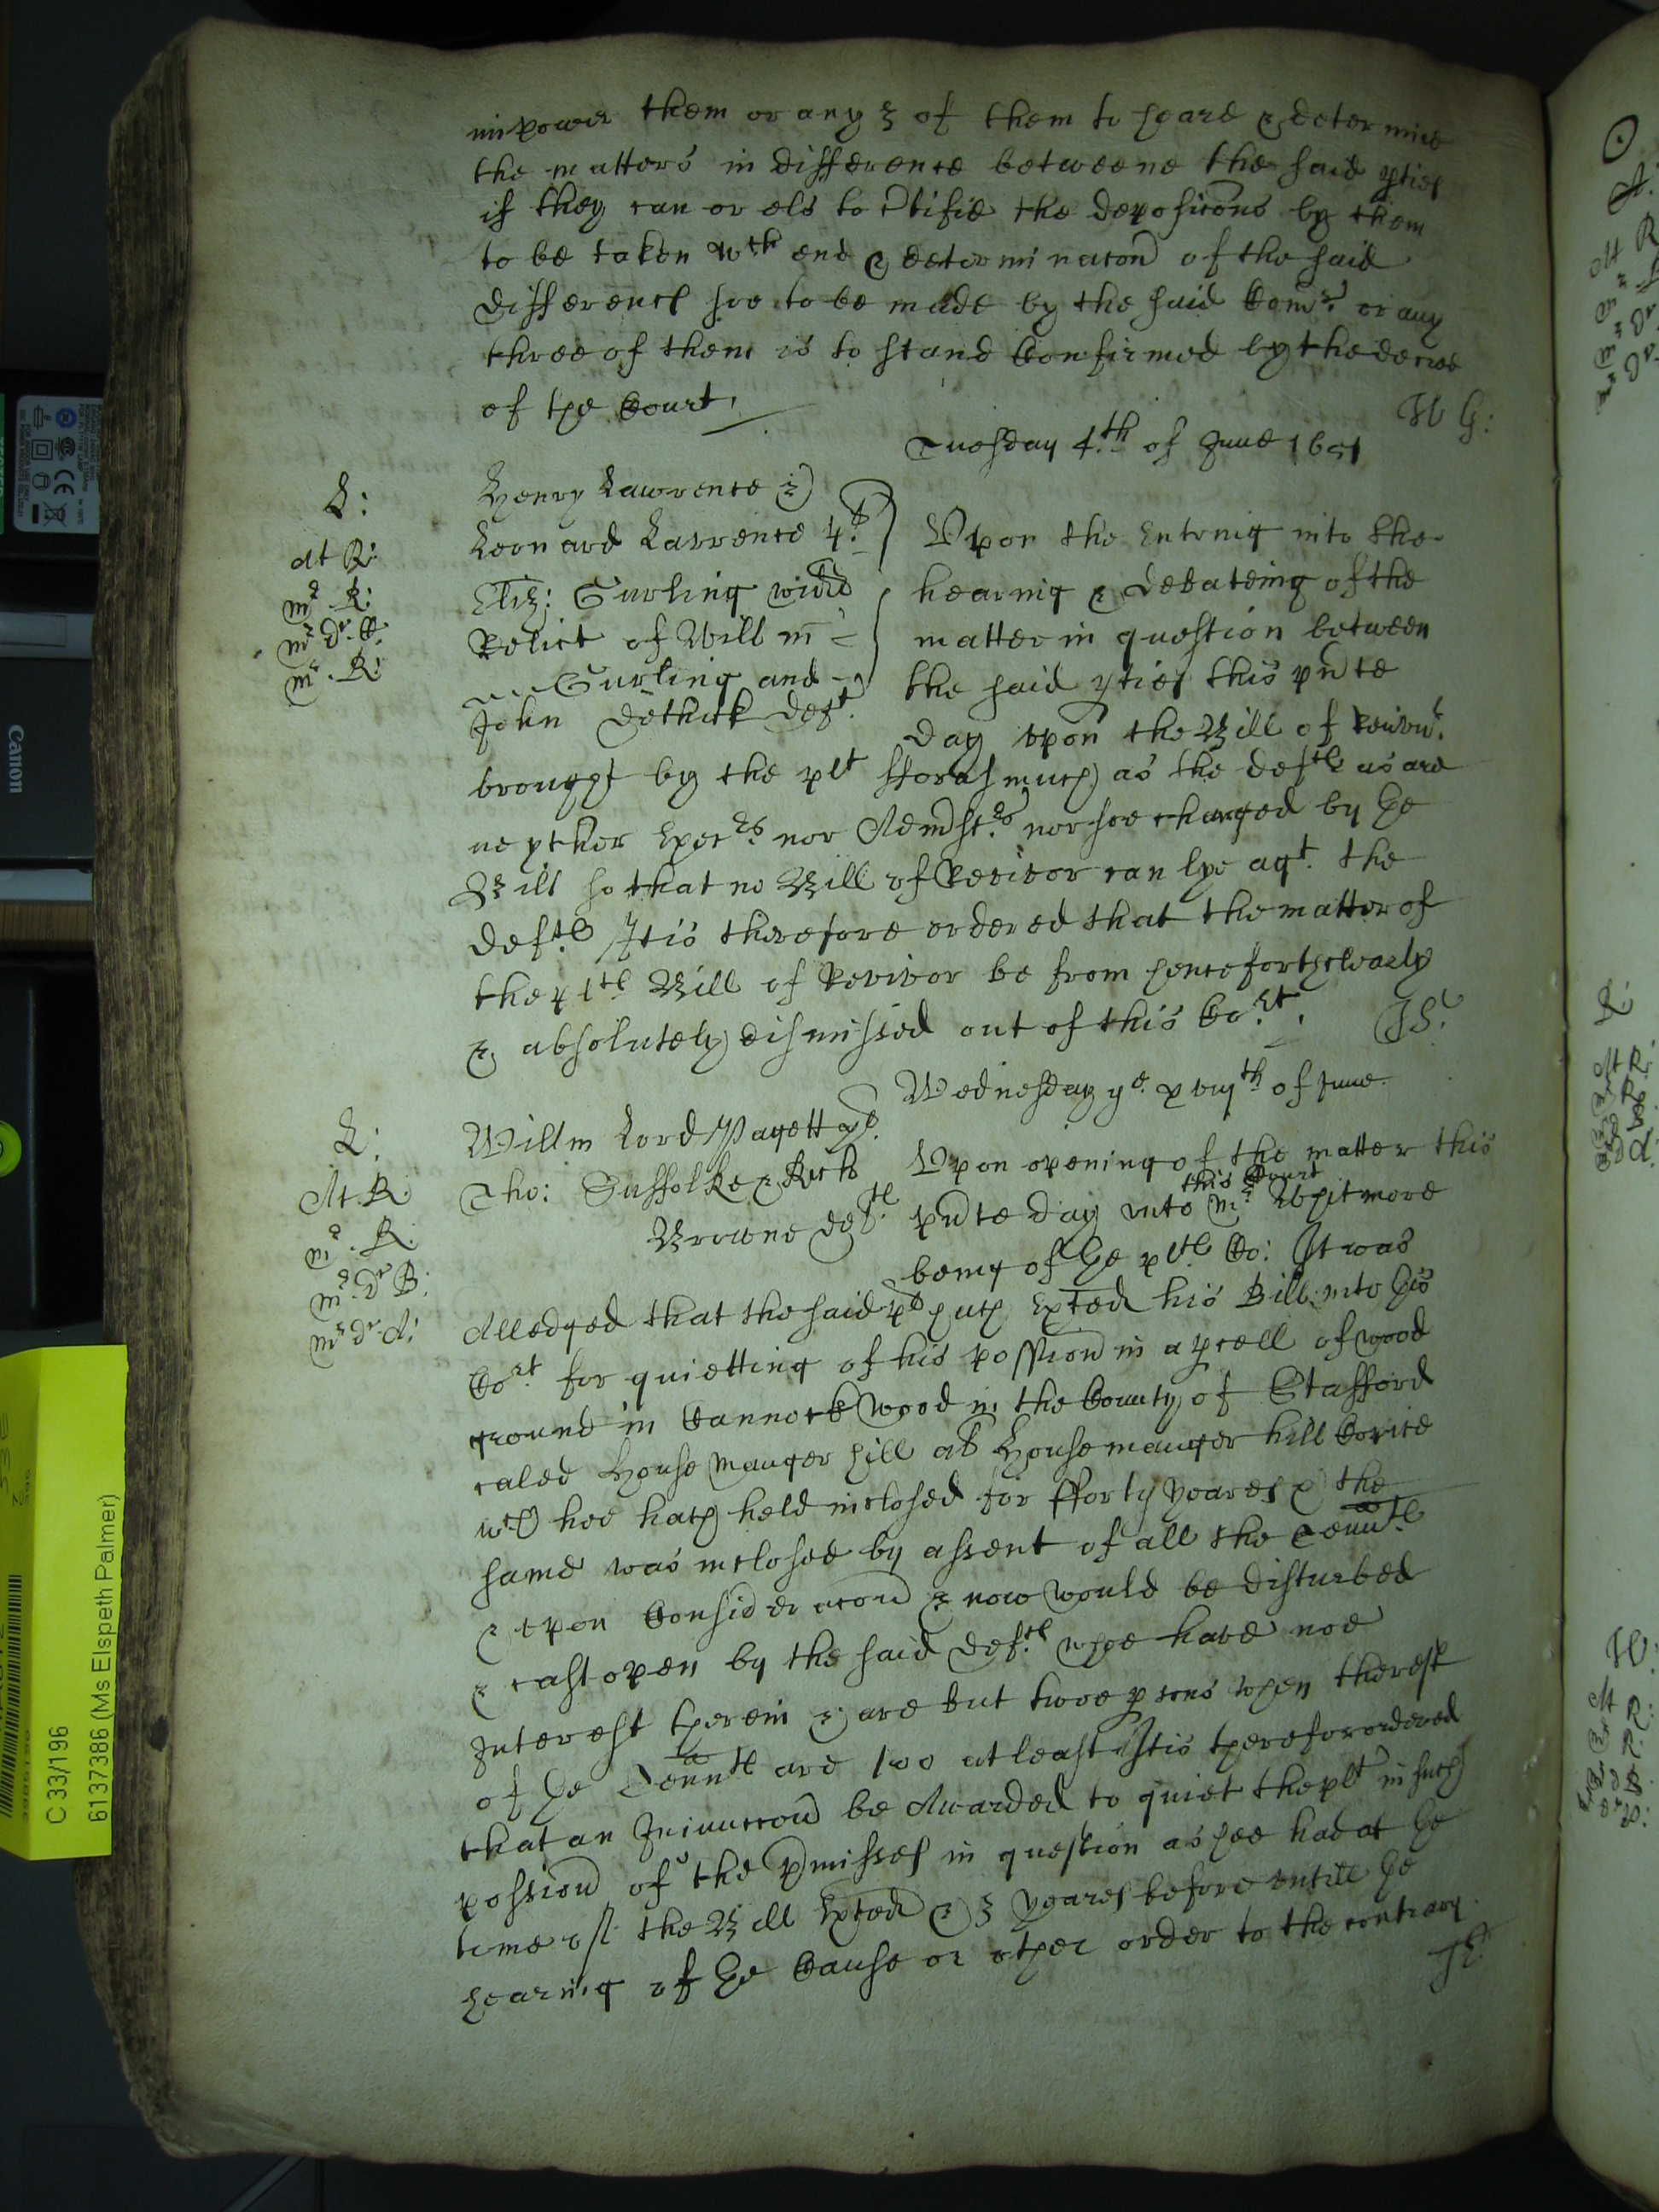 impower them or any 3 of them to heare & determine
the matters in difference betweene the said pties
if they can or els to ctifie the deposicons by them
to be taken wch end & determinacon of the said
differences soe to be made by the said Comrs or any
three of them is to stand Confirmed by the decree
of the Court.
W G:
Tuesday 4.th of June 1651
L:
At R:
Mr R:
Mr Dr. B.
Mr. R:
Henry Lawrence &
Leonard Lawrence plts
Eliz: Gurling widd
Relict of Willm
Gurling and
John Dethick deft.
Upon the Entring into the
hearing & debateing of the
matter in question between
the said pties this pnte
day upon the Bill of Revivr.
brought by the plt fforasmuch as the defts as are
neyther Exectrs nor Admstrs nor soe charged by the
Bill so that no Bill of Revivor can lye agt. the
defts It is therefore ordered that the matter of
the plts Bill of Revivor be from henceforth clearly
& absolutely dismissed out of this Cort.
JS:
Wednesday ye. xviijth of June
L:
At. R:
Mr. R.
Mr. Dr B:
Mr Dr A:
Willm Lord Pagett plt.
Tho: Suffolke & Rich
Browne defts
Upon opening of the matter this
pnte day unto this Court Mr Whitmore
being of the plts Co: It was
Alledged that the said plt hath Exhted his Bill into this
Cort. for quietting of his possion in a pcell of wood
ground in Cannock Wood in the County of Stafford
caled Housemanger hill als Housemanger hill Copice
wch hee hath held inclosed for fforty yeares & the
same was inclosed by assent of all the Comrs Tennts
& upon Consideracon & now would be disturbed
& cast open by the said defts whoe have noe
Interest therein & are but twoe psons when the rest
of the Tennts are 100 at least It is therefor ordered
that an Iniunccon be Awarded to quiet the plt in such
possion of the pmisses in question as hee had at the
time of the Bill Exhted & 3 yeares before untill the
hearing of the Cause or other order to the contrary.
JS:
C 33/196
6137386 (Ms Elspeth Palmer)
Canon